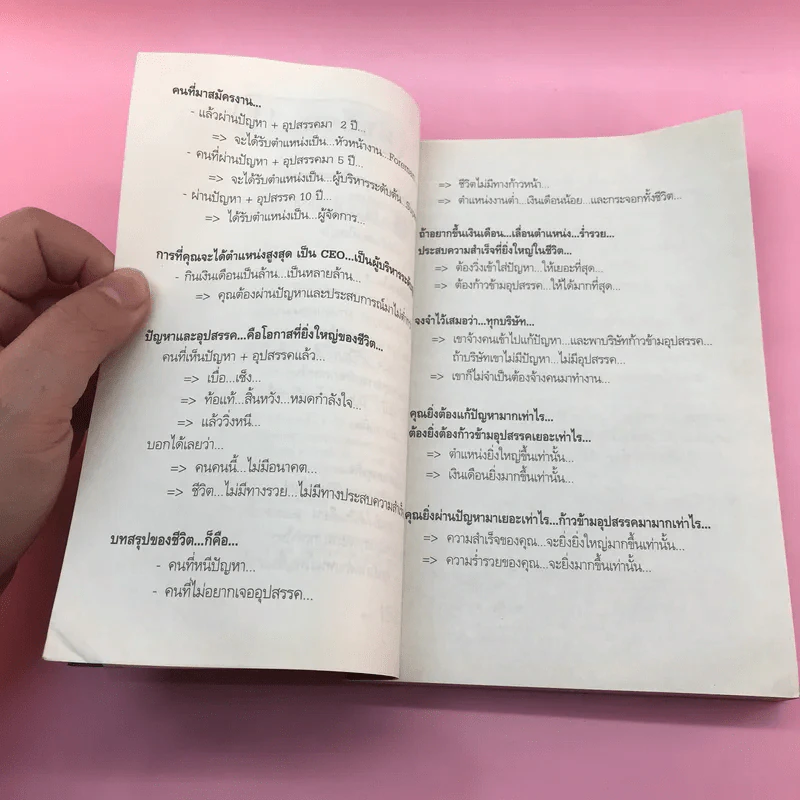 คนที่มาสมัครงาน...
- แล้วผ่านปัญหา + อุปสรรคมา 2 ปี...
=> จะได้รับตำแหน่งเป็น...หัวหน้างาน...Foreman
- คนที่ผ่านปัญหา + อุปสรรคมา 5 ปี...
=> จะได้รับตำแหน่งเป็น...ผู้บริหารระดับต้น...
- ผ่านปัญหา + อุปสรรค 10 ปี...
=> ได้รับตำแหน่งเป็น...ผู้จัดการ...
การที่คุณจะได้ตำแหน่งสูงสุด เป็น CEO...เป็นผู้บริหารระดับ
- กินเงินเดือนเป็นล้าน...เป็นหลายล้าน...
=> คุณต้องผ่านปัญหาและประสบการณ์มาไม่
ปัญหาและอุปสรรค...คือโอกาสที่ยิ่งใหญ่ของชีวิต...
คนที่เห็นปัญหา + อุปสรรคแล้ว...
=> เบื่อ...เซ็ง...
=> ท้อแท้...สิ้นหวัง...หมดกำลังใจ...
=> แล้ววิ่งหนี...
บอกได้เลยว่า...
=> คนคนนี้...ไม่มีอนาคต...
=> ชีวิต...ไม่มีทางรวย...ไม่มีทางประสบความสำเร็จ
บทสรุปของชีวิต...ก็คือ...
- คนที่หนีปัญหา...
- คนที่ไม่อยากเจออุปสรรค...
=> ชีวิตไม่มีทางก้าวหน้า...
=> ตำแหน่งงานต่ำ...เงินเดือนน้อย...และกระจอกทั้งชีวิต...
ถ้าอยากขึ้นเงินเดือน...เลื่อนตำแหน่ง...ร่ำรวย...
ประสบความสำเร็จที่ยิ่งใหญ่ในชีวิต...
=> ต้องวิ่งเข้าใส่ปัญหา...ให้เยอะที่สุด...
=> ต้องก้าวข้ามอุปสรรค...ให้ได้มากที่สุด...
จงจำไว้เสมอว่า...ทุกบริษัท...
=> เขาจ้างคนเข้าไปแก้ปัญหา...และพาบริษัทก้าวข้ามอุปสรรค...
ถ้าบริษัทเขาไม่มีปัญหา...ไม่มีอุปสรรค...
=> เขาก็ไม่จำเป็นต้องจ้างคนมาทำงาน...
คุณยิ่งต้องแก้ปัญหามากเท่าไร...
ต้องยิ่งต้องก้าวข้ามอุปสรรคเยอะเท่าไร...
=> ตำแหน่งยิ่งใหญ่ขึ้นเท่านั้น...
=> เงินเดือนยิ่งมากขึ้นเท่านั้น...
คุณยิ่งผ่านปัญหามาเยอะเท่าไร...ก้าวข้ามอุปสรรคมามากเท่าไร...
=> ความสำเร็จของคุณ...จะยิ่งยิ่งใหญ่มากขึ้นเท่านั้น...
=> ความร่ำรวยของคุณ...จะยิ่งมากขึ้นเท่านั้น...